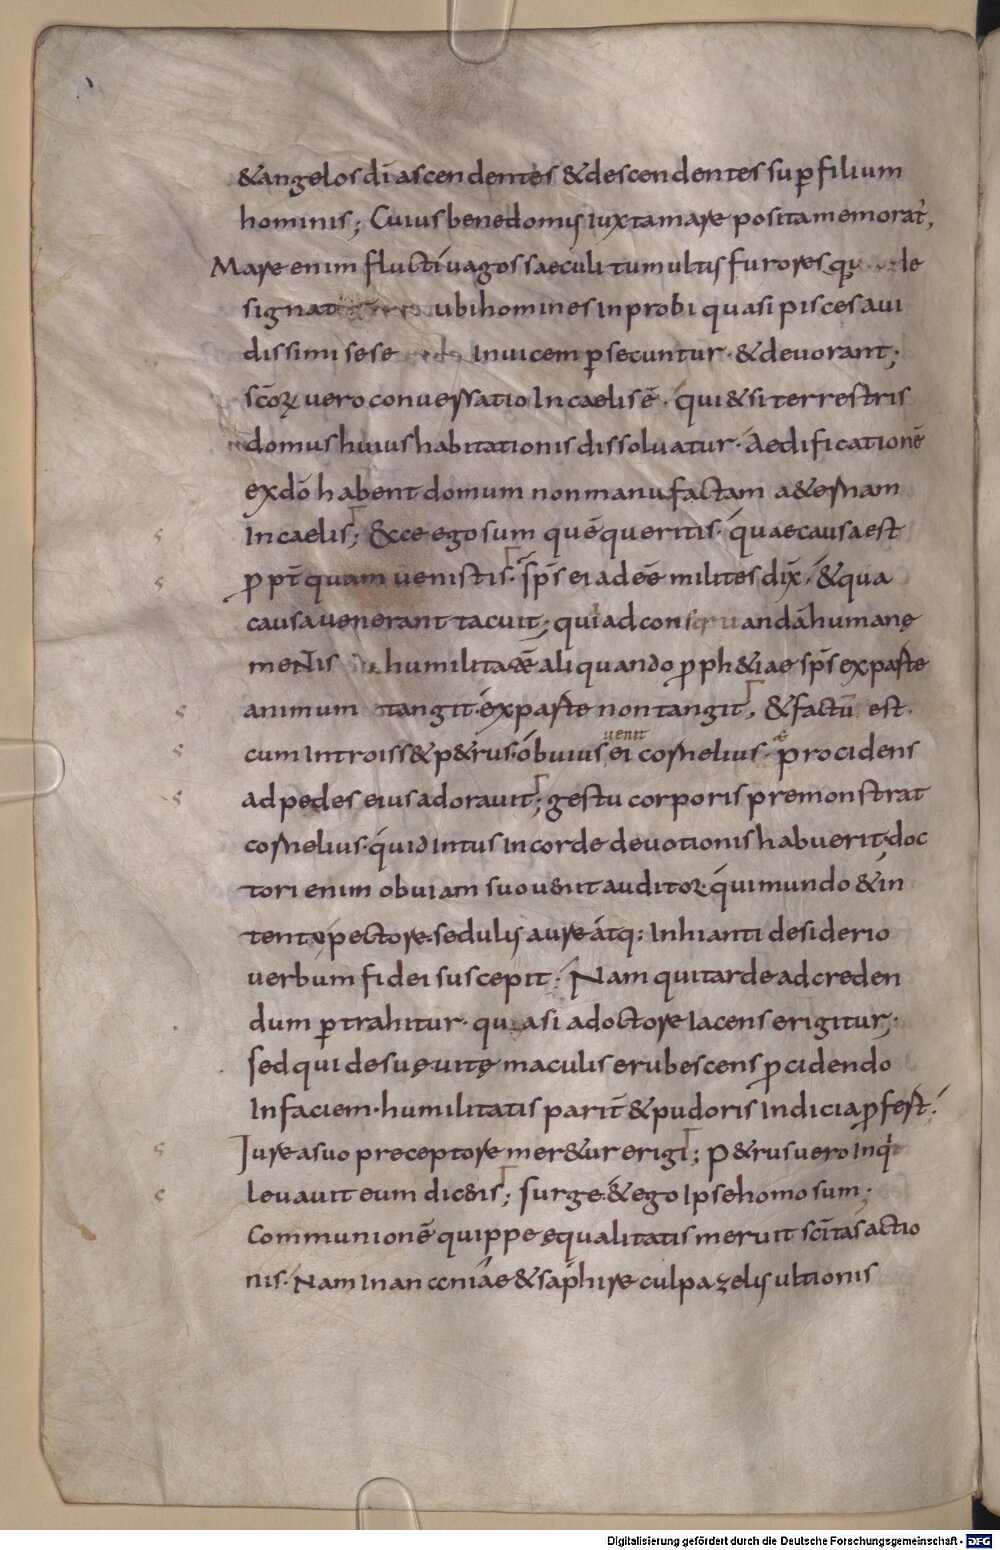 &angelos dī ascendentes &descendentes sup filium
hominis; Cuius bene domus iuxta mare posita memorat,
Mare enim fluctivagos saeculi tumultus furores de
signat ubi homines inprobi quasi pisces aui
dissimi sese Inuicem psecuntur · &deuorant;
scōꝝ uero conuersatio In caelis ē · qui &si terrestris
domus huius habitationis dissoluatur · Aedificationē
ex dō habent domum non manufactam a&ernam
In caelis; &cce ego sum quē queritis · quae causa est
p pt̄ quam uenistis · sp̄s ei adeē milites dix̄ · &qua
causa uenerant tacuit; qui ad con andā humanę
mentis humilitatē aliquando pph&iae sp̄s ex parte
animum tangit · ex parte non tangit, &factū est ·
cum Introiss& p&rus · obuius uenit ei cornelius · & procidens
ad pedes eius adorauit; gestu corporis premonstrat
cornelius · quid intus In corde deuotionis habuerit; doc
tori enim obuiam suo uenit auditor · qui mundo &in
tento pectore · sedulis aure atq; Inhianti desiderio
uerbum fidei suscepit · Nam qui tarde ad creden
dum ptrahitur · quasi a doctore Iacens erigitur;
sed qui de suę uitę maculis erubescens pcidendo
In faciem · humilitatis parit̄ &pudoris Indicia pfert ·
Iure a suo preceptore mer&ur erigi; P&rus uero Inqt
leuauit eum dicens; surge · &ego Ipse homo sum ·
Communionē quippe ęqualitatis meruit scītas actio
nis · Nam In anania &saphire culpa zelus ultionis
Digitalisierung gefördert durch die Deutsche Forschungsgemeinschaft - DFG